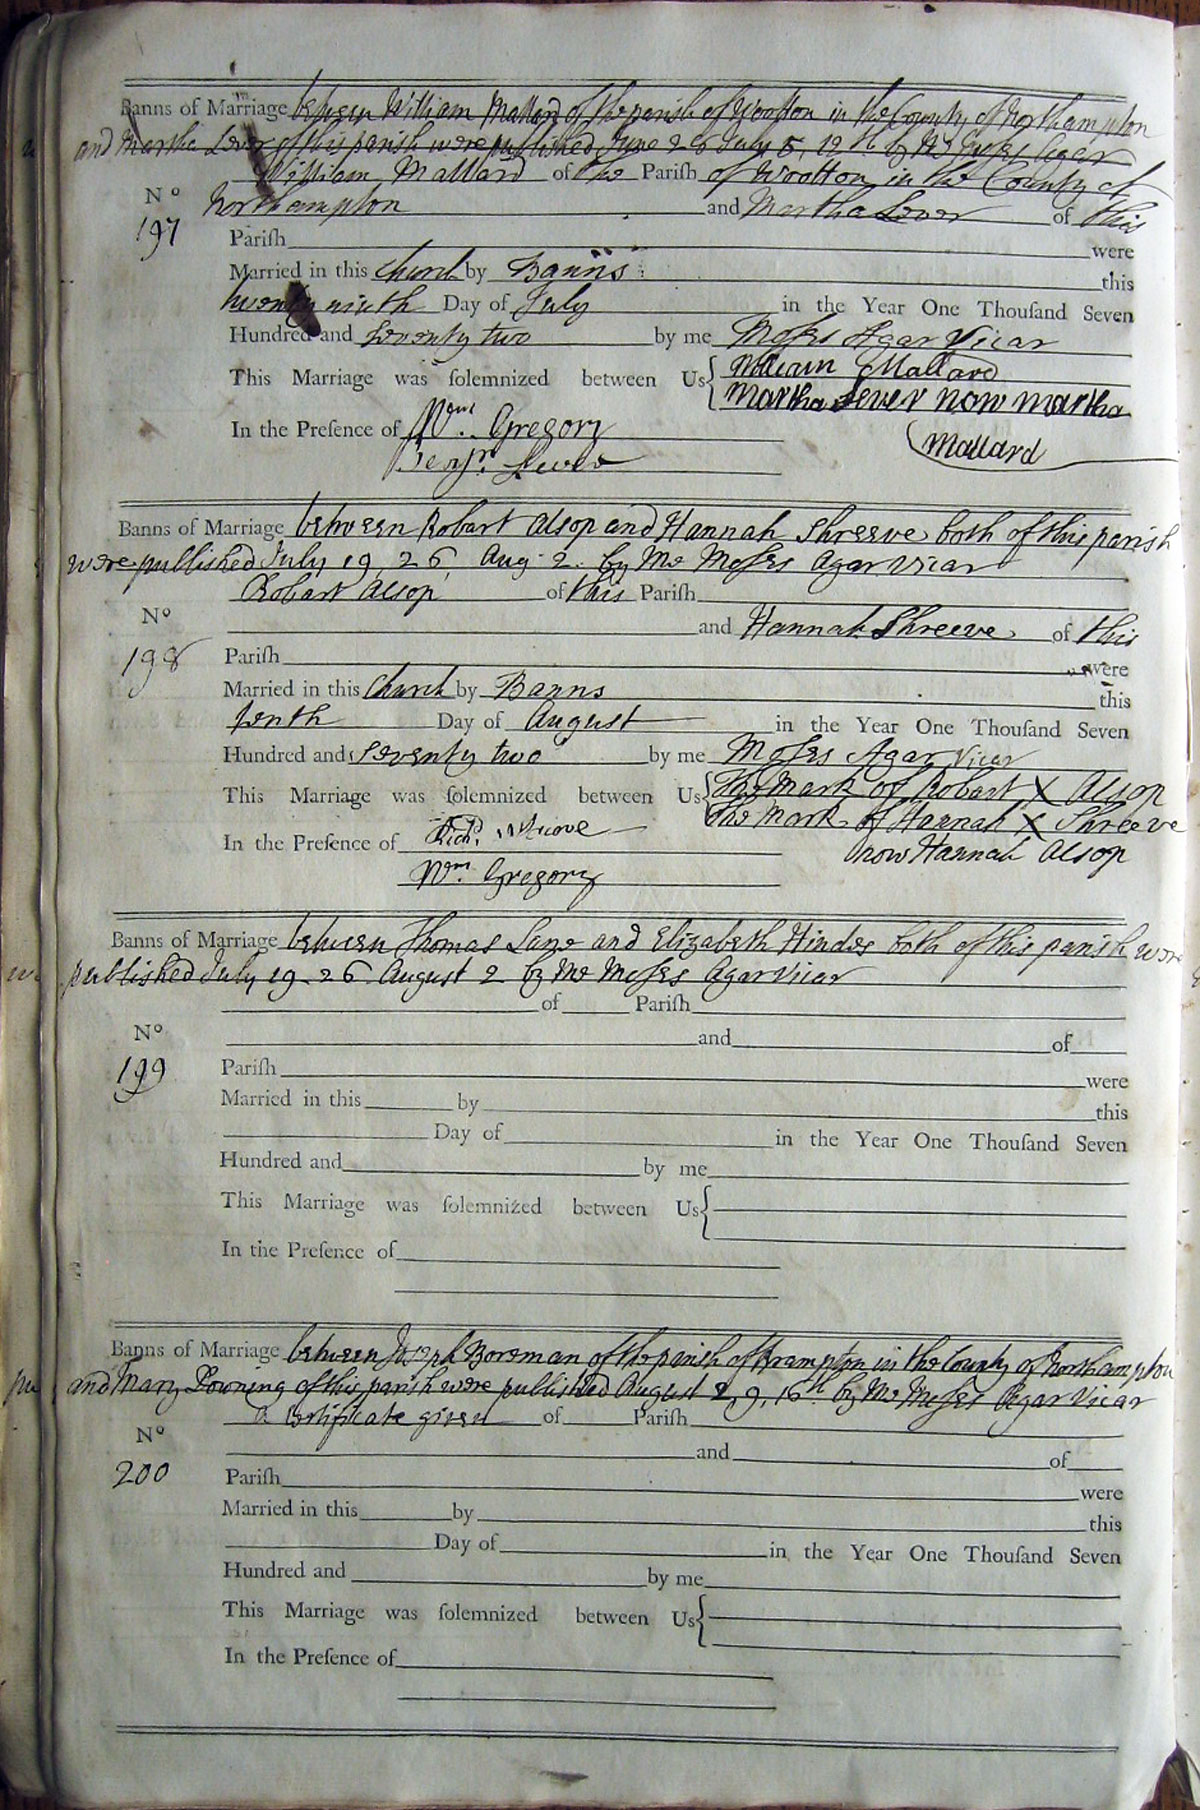 Banns of Marriage between William Mallard of the parish of Wootton in the County of Northampton
and Martha Lever of this parish were published June 28 July 5, 12th by Mr Agar
William Mallard of the Pariſh of Wootton in the County of
No
Northampton and Martha Lever of this
197
Pariſh were
Married in this Church by Banns this
twenty ninth Day of July in the Year One Thouſand Seven
Hundred and Seventy two by me Moses Agar Vicar
This Marriage was ſolemnized between Us William Mallard
Martha Lever now martha
mallard
In the Preſence of Wm. Gregory
Benjn. Lever
Banns of Marriage between Robart Alsop and Hannah Shreeve both of this parish
were published July 19, 26, Aug 2. by Mr Moses Agar Vicar
Robart Alsop of this Pariſh
No
and Hannah Shreeve of this
198
Pariſh were
Married in this Church by Banns this
tenth Day of August in the Year One Thouſand Seven
Hundred and Seventy two by me Moses Agar Vicar
This Marriage was ſolemnized between Us The Mark of Robart X Alsop
The Mark of Hannah X Shreeve
now Hannah Alsop
In the Preſence of Richd.
Wm. Gregory
Banns of Marriage between Thomas Lane and Elizabeth Hindes both of this parish were
published July 19 26 August 2 by Mr Moses Agar Vicar
of Pariſh
No
and of
199
Pariſh were
Married in this by this
Day of in the Year One Thouſand Seven
Hundred and by me
This Marriage was ſolemnized between Us
In the Preſence of
Banns of Marriage between Joseph Boreman of the parish of Brampton in the County of Northampton
and Mary Downing of this parish were published August 2, 9, 16th by Mr Moses Agar Vicar
a Certificate given of Pariſh
No
and of
200
Pariſh were
Married in this by this
Day of in the Year One Thouſand Seven
Hundred and by me
This Marriage was ſolemnized between Us
In the Preſence of